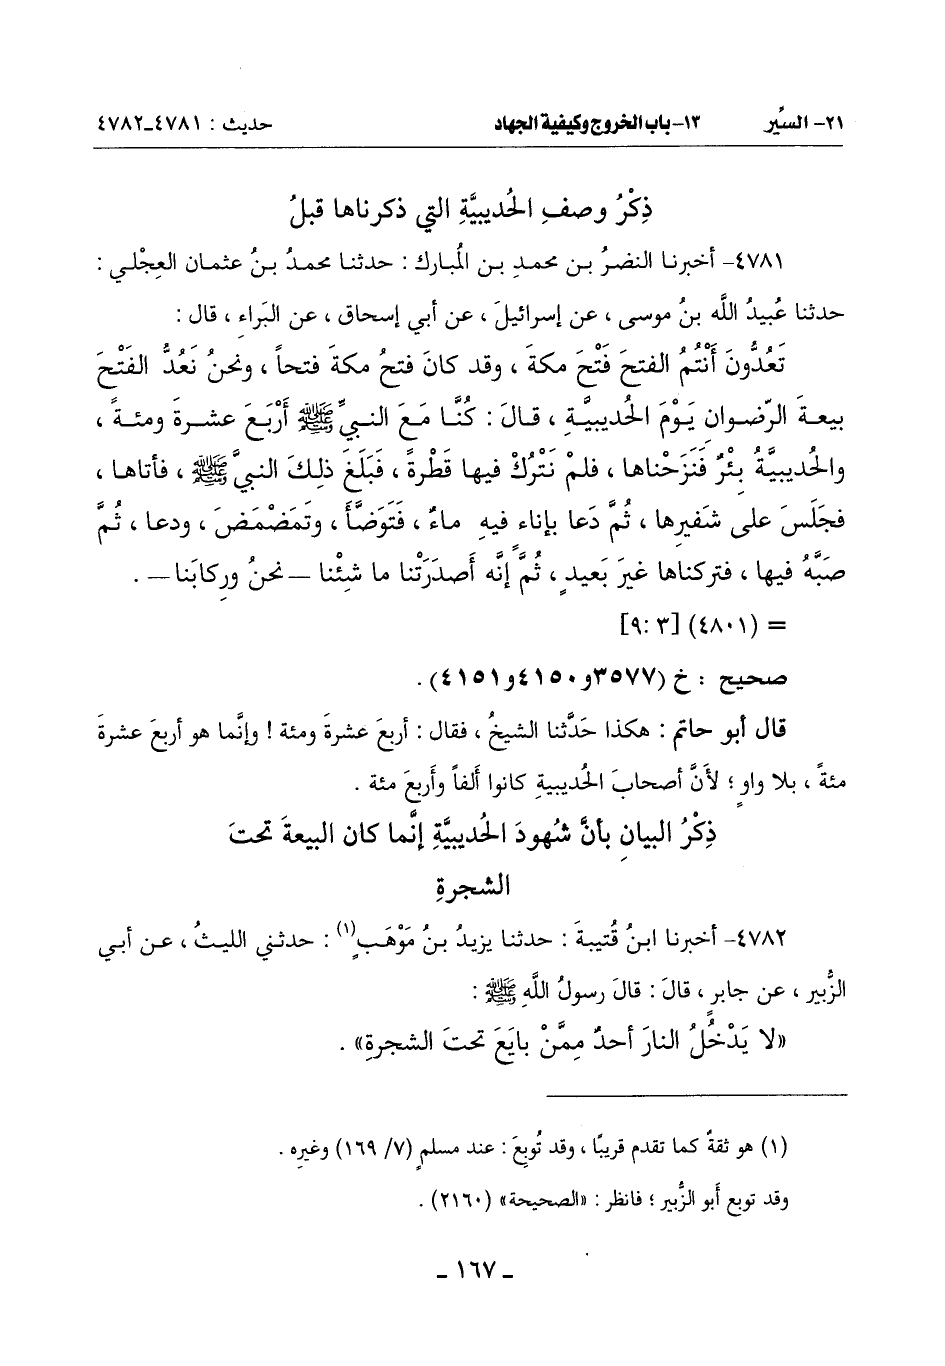 ٢١- السِّير ١٣-باب الخروج وكيفية الجهاد حديث : ٤٧٨١-٤٧٨٢
ذِكْرُ وصفِ الحُديبيَّةِ التي ذكرناها قبلُ
٤٧٨١- أخبرنا النضرُ بن محمدِ بن المُبارك : حدثنا محمدُ بنُ عثمان العِجْلي :
حدثنا عُبيدُ اللَّه بنُ موسى ، عن إسرائيلَ ، عن أبي إسحاق ، عن البَراء ، قال :
تَعُدُّونَ أَنْتُمُ الفتحَ فَتْحَ مكةَ ، وقد كانَ فتحُ مكةَ فتحاً ، ونحنُ نَعُدُّ الفَتْحَ
بيعةَ الرّضوانِ يَوْمَ الحُديبيَّةِ ، قالَ : كُنَّا مَعَ النبيِّ ﷺ أَرْبَعَ عشرةَ ومئةً ،
والحُديبيَّةُ بئْرٌ فَنَزَحْناها ، فلمْ نَتْرُكْ فيها قَطْرةً ، فَبَلَغَ ذلِكَ النبيَّ ﷺ ، فأتاها ،
فجَلَسَ على شَفيرِها ، ثُمَّ دَعا بإناءٍ فيهِ ماءٌ ، فَتَوَضَّأَ ، وتَمَضْمَضَ ، ودعا ، ثُمَّ
صَبَّهُ فيها ، فتركناها غيرَ بَعيدٍ ، ثُمَّ إنَّه أَصدَرَتْنا ما شِئْنا –نحنُ ورِكابَنا– .
= (٤٨٠١) [٣ :٩]
صحيح : خ (٣٥٧٧ و٤١٥٠ و٤١٥١) .
قال أبو حاتم : هكذا حَدَّثنا الشيخُ ، فقال : أربعَ عشرةَ ومئة ! وإنَّما هو أربعَ عشرةَ
مئةً ، بلا واوٍ ؛ لأَنَّ أصحابَ الحُديبيةِ كانوا أَلفاً وأَربعَ مئة .
ذِكْرُ البيانِ بأنَّ شُهودَ الحُديبيَّةِ إنَّما كان البيعةَ تحتَ
الشجرةِ
٤٧٨٢- أخبرنا ابنُ قُتيبةَ : حدثنا يزيدُ بنُ مَوْهَبٍ(١) : حدثني الليثُ ، عن أبي
الزُّبير ، عن جابرٍ ، قالَ : قالَ رسولُ اللَّهِ ﷺ :
«لا يَدْخُلُ النارَ أحدٌ مِمَّنْ بايَعَ تحتَ الشجرةِ» .
(١) هو ثقةٌ كما تقدم قريبًا ، وقد تُوبِعَ : عند مسلمٍ (٧/ ١٦٩) وغيرِه .
وقد توبع أَبو الزُّبير ؛ فانظر : «الصحيحة» (٢١٦٠) .
- ١٦٧ -